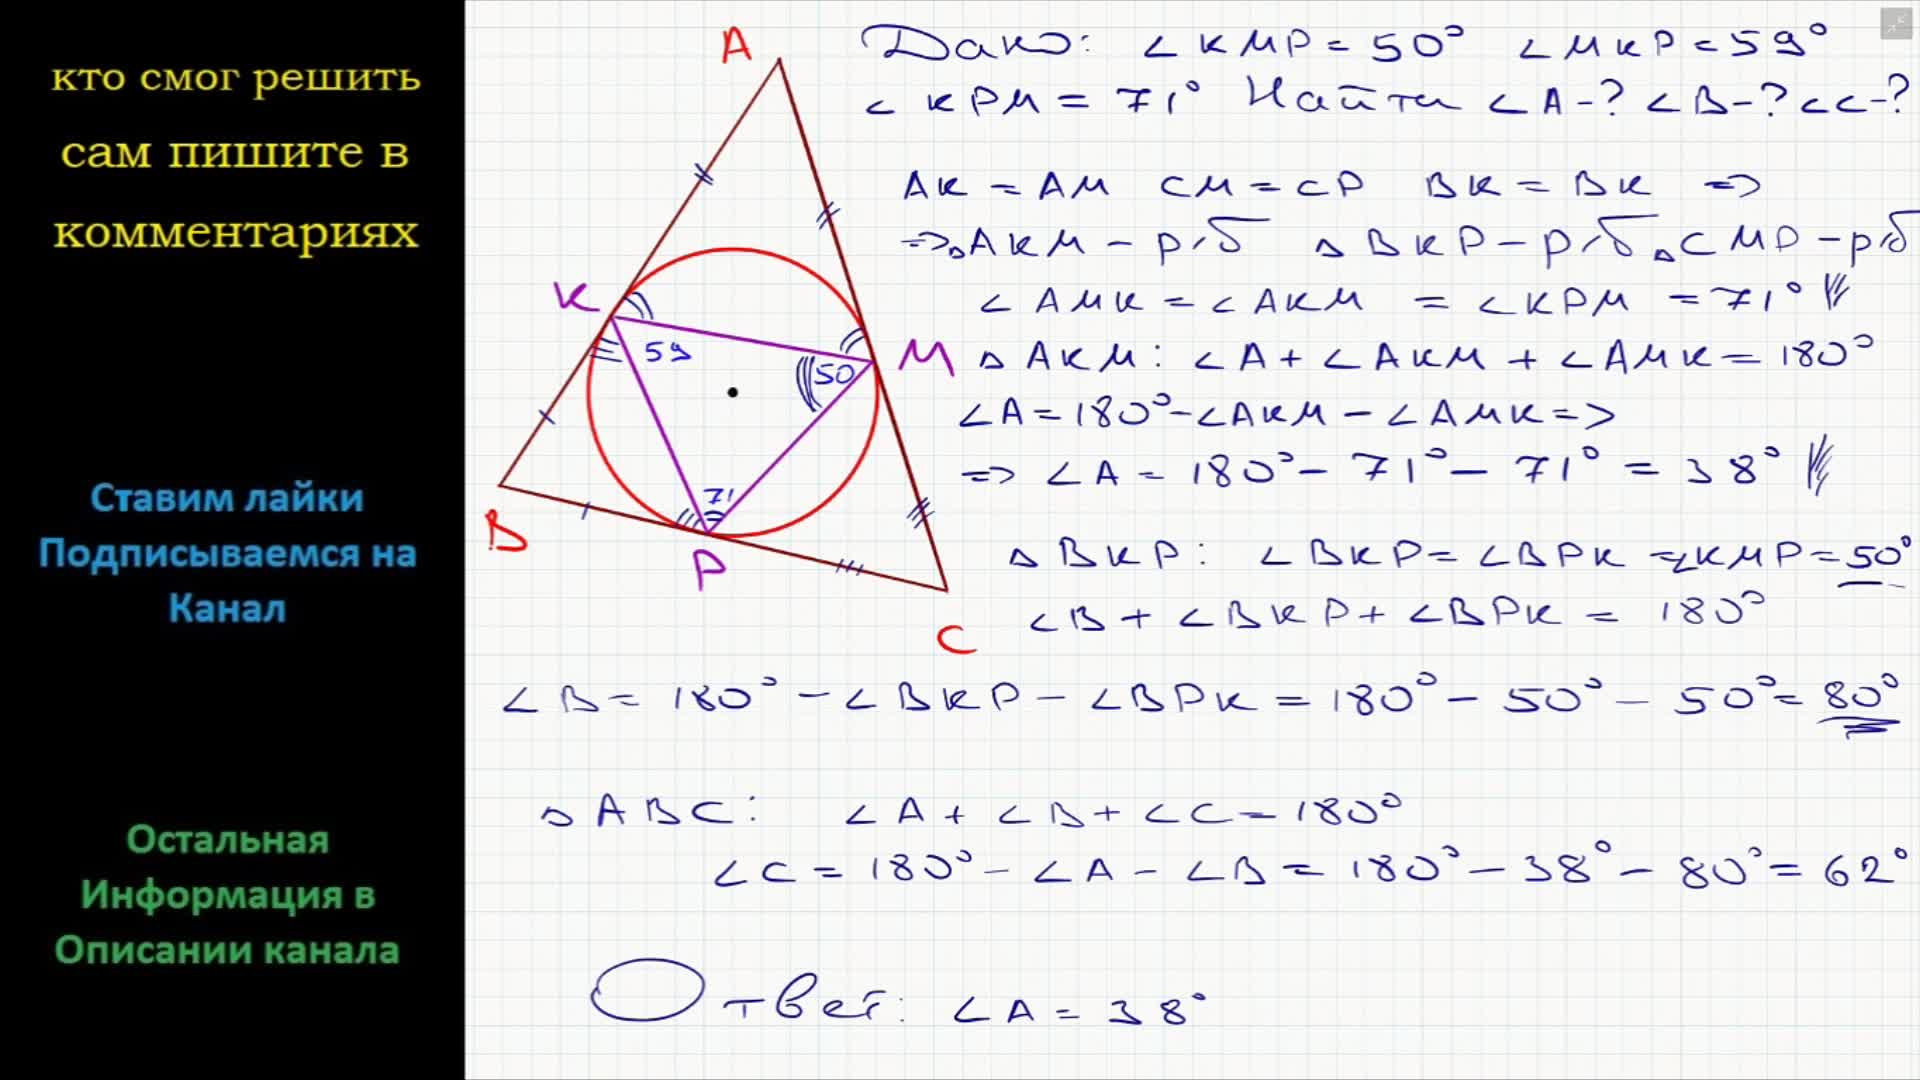 кто смог решить
сам пишите в
комментариях
Ставим лайки
Подписываемся на
Канал
Остальная
Информация в
Описании канала
A
K
59
50
M
71
B
P
C
Дано: ∠KMP = 50° ∠MKP = 59°
∠KPM = 71° Найти ∠A-? ∠B-? ∠C-?
AK = AM CM = CP BK = BK =>
=> △AKM - р/б △BKP - р/б △CMP - р/б
∠AMK = ∠AKM = ∠KPM = 71°
△AKM: ∠A + ∠AKM + ∠AMK = 180°
∠A = 180° - ∠AKM - ∠AMK =>
=> ∠A = 180° - 71° - 71° = 38°
△BKP: ∠BKP = ∠BPK = ∠KMP = 50°
∠B + ∠BKP + ∠BPK = 180°
∠B = 180° - ∠BKP - ∠BPK = 180° - 50° - 50° = 80°
△ABC: ∠A + ∠B + ∠C = 180°
∠C = 180° - ∠A - ∠B = 180° - 38° - 80° = 62°
Ответ: ∠A = 38°